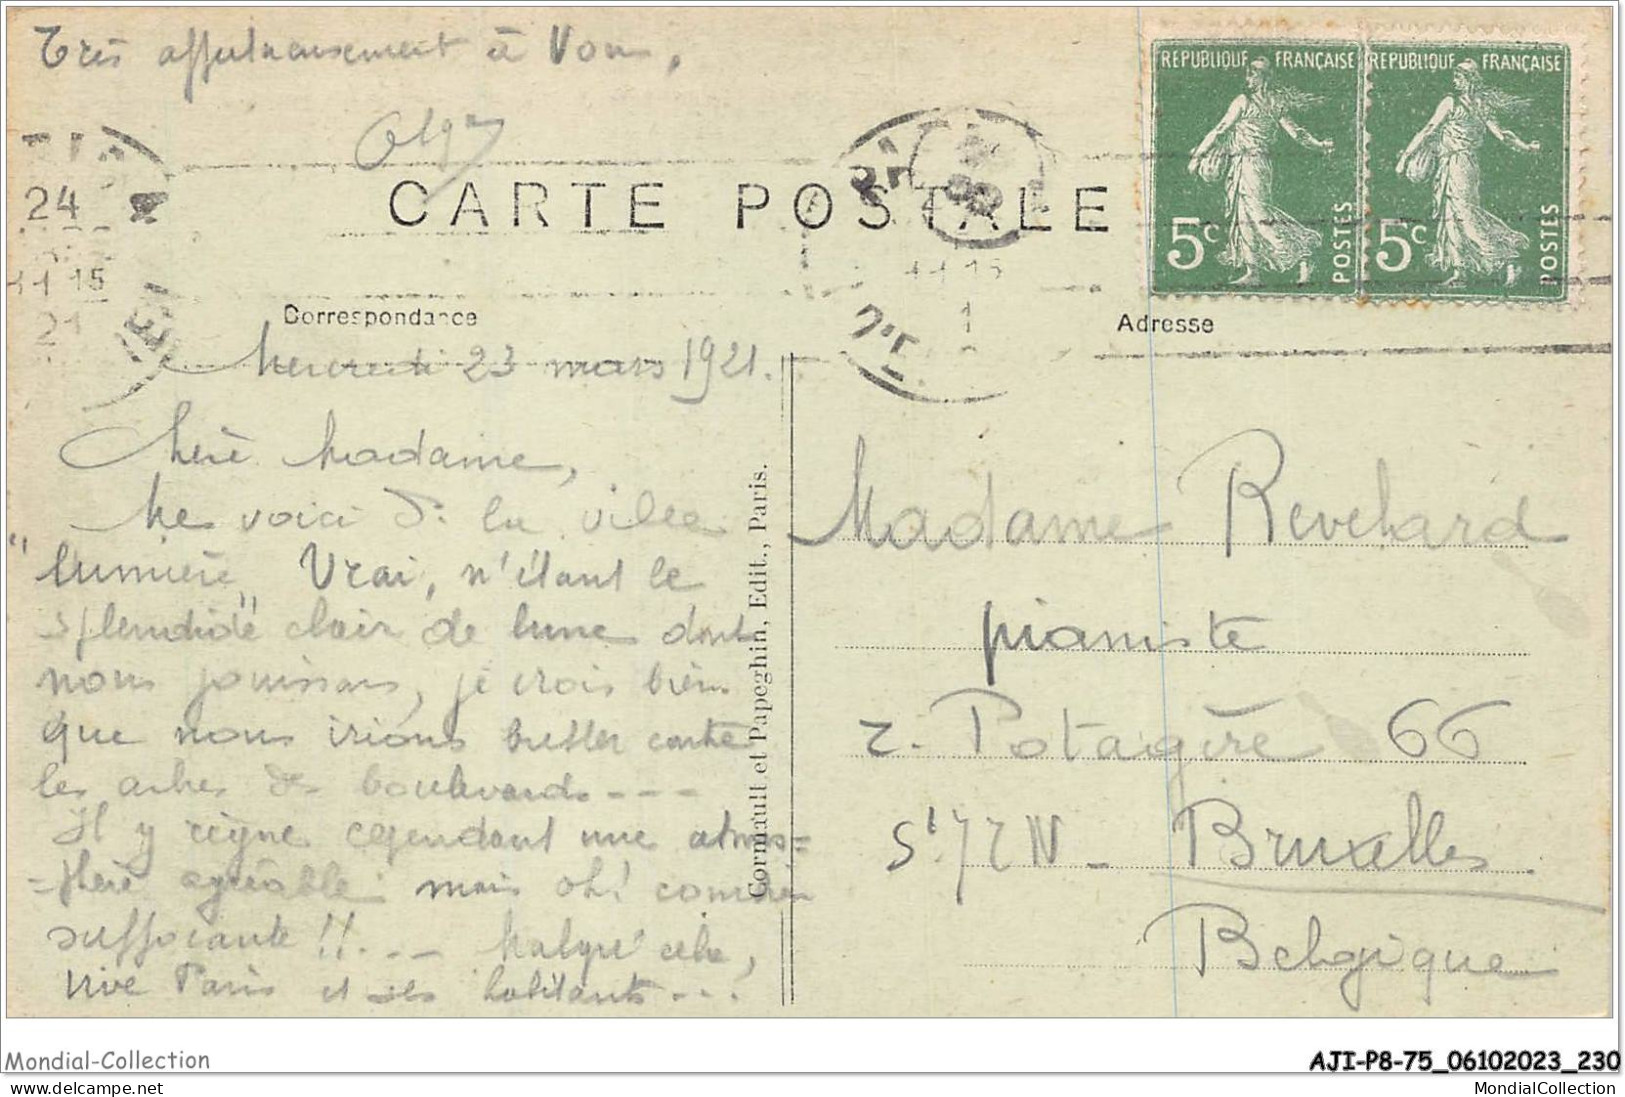 Très affectueusement à Vous,
Olga
RÉPUBLIQUE FRANÇAISE
5c POSTES
RÉPUBLIQUE FRANÇAISE
5c POSTES
24
11 15
21
CARTE POSTALE
11 15
Correspondance
Adresse
Mercredi 23 mars 1921.
Chère Madame,
Me voici ds. la ville
"lumière" Vrai, n'étant le
splendide clair de lune dont
nous jouissons, je crois bien
que nous irions butter contre
les arbres ds boulevards ---
Il y règne cependant une atmos=
=phère agréable mais oh! combien
suffocante !! --- Malgré cela,
vive Paris et ses habitants ---
Cormault et Papeghin, Edit., Paris.
Madame Revelard
pianiste
r. Potagère 66
St Jz N - Bruxelles
Belgique
Mondial-Collection
delcampe.net
AJI-P8-75_06102023_230
MondialCollection